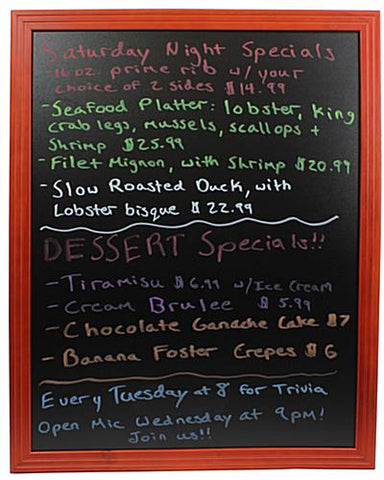 Saturday Night Specials
-16 oz. prime rib w/ your
choice of 2 sides $14.99
-Seafood Platter: lobster, king
crab legs, mussels, scallops +
Shrimp $25.99
-Filet Mignon, with Shrimp $20.99
-Slow Roasted Duck, with
Lobster bisque $22.99
DESSERT Specials!!
-Tiramisu $6.99 w/Ice Cream
-Cream Brulee $5.99
-Chocolate Ganache Cake $7
-Banana Foster Crepes $6
Every Tuesday at 8 for Trivia
Open Mic Wednesday at 9pm!
Join us!!